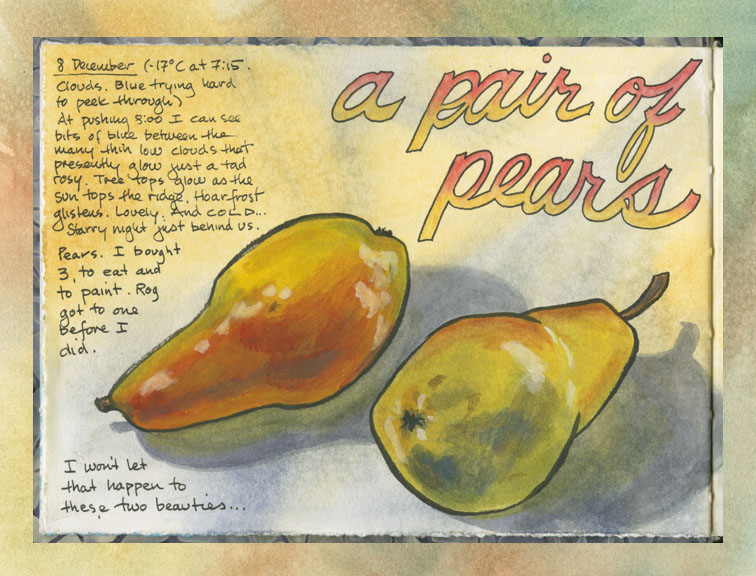 8 December (-17°C at 7:15.
Clouds. Blue trying hard
to peek through)
At pushing 8:00 I can see
bits of blue between the
many thin low clouds that
presently glow just a tad
rosy. Tree tops glow as the
sun tops the ridge. Hoarfrost
glistens. Lovely. And COLD...
Starry night just behind us.
Pears. I bought
3, to eat and
to paint. Rog
got to one
before I
did.
I won't let
that happen to
these two beauties...
a pair of
pears